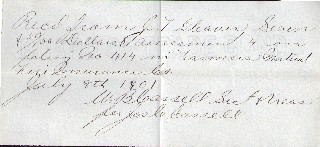 Recd from J T Cleaver Seven
& 7/00 Dollars assessment 4 on
policy No 414 in Farmers Mutual
Insurance Co
July 9th 1901
Cassell Sec & Treas
per Jos C Cassell